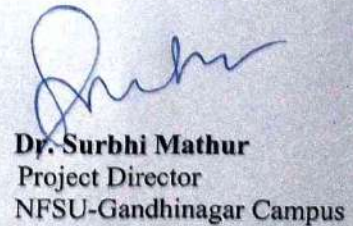 Dr. Surbhi Mathur
Project Director
NFSU-Gandhinagar Campus